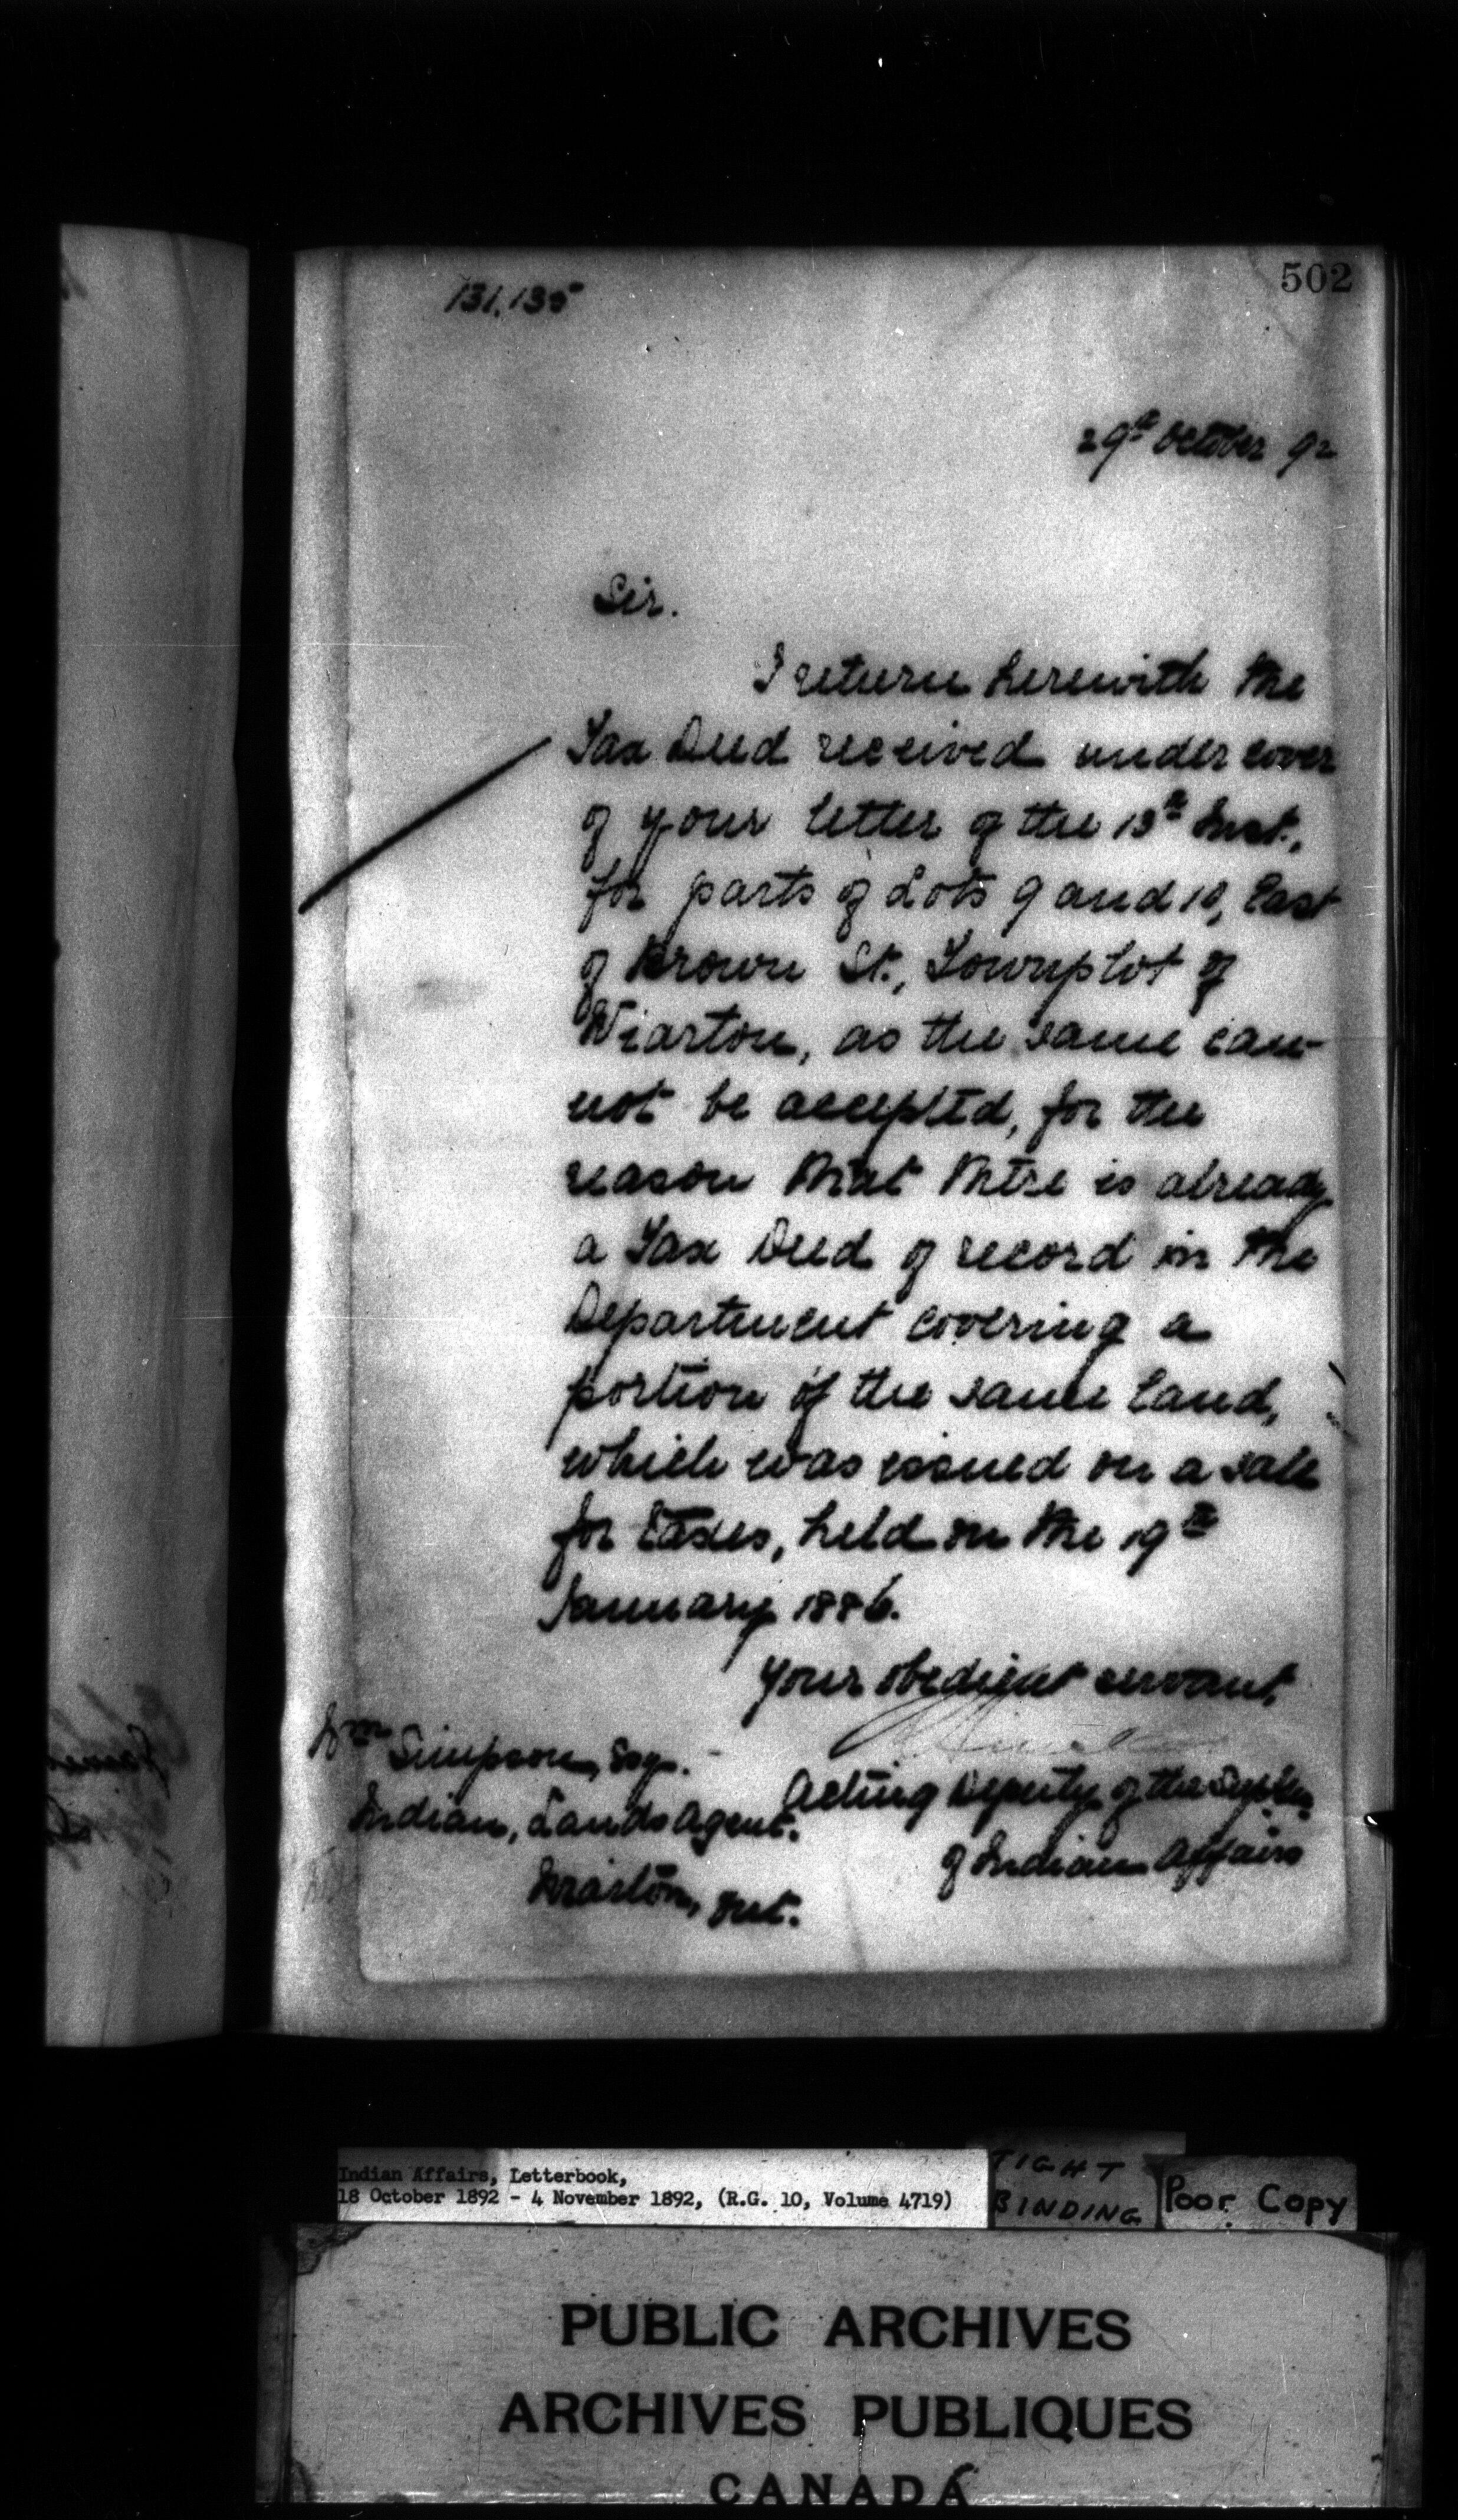 502
131,135
29th October 92
Sir.
I return herewith the
Tax Deed received under cover
of your letter of the 13th Inst.,
for parts of Lots 9 and 10, East
of Brown St., Townplot of
Wiarton, as the same can-
not be accepted, for the
reason that there is already
a Tax Deed of record in the
Department covering a
portion of the same land,
which was issued on a sale
for taxes, held on the 19th
January 1886.
Your obedient servant,
Wm Simpson, Esq.
Acting Deputy of the
Indian, Lands Agent.
of Indian Affairs
Wiarton, Ont.
Indian Affairs, Letterbook,
18 October 1892 - 4 November 1892, (R.G. 10, Volume 4719)
TIGHT
BINDING
Poor Copy
PUBLIC ARCHIVES
ARCHIVES PUBLIQUES
CANADA